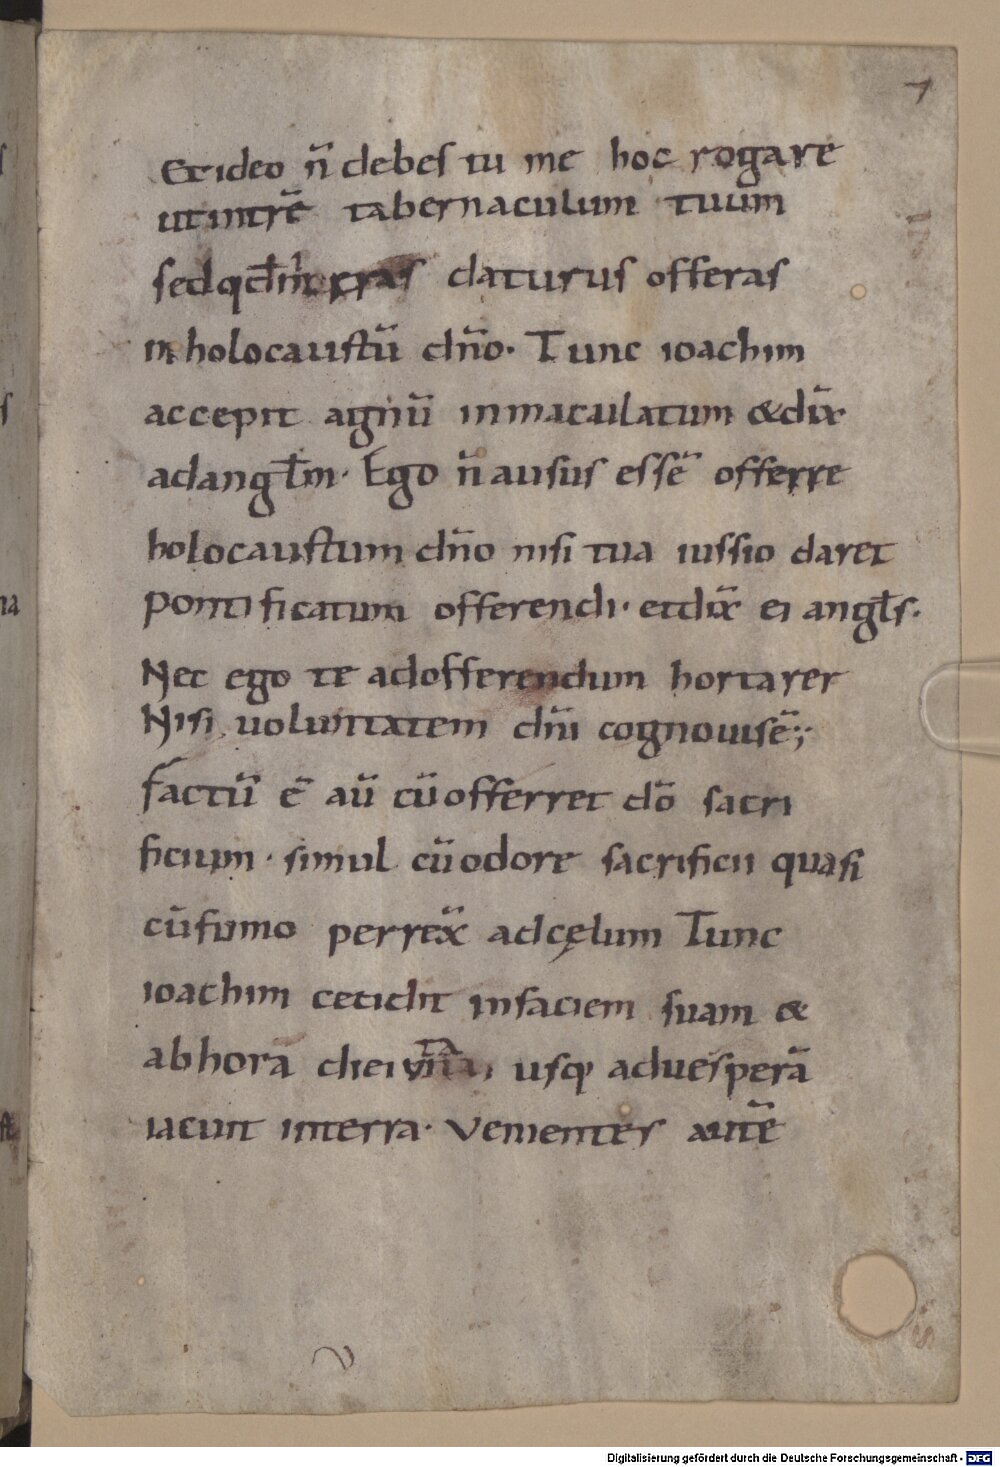 7
Et ideo n̄ debes tu me hoc rogare
ut intrē tabernaculum tuum
sed qđ m̊ eras daturus offeras
in holocaustū dn̄o. Tunc ioachim
accepit agnū inmaculatum & dix̄
ad angłm. Ego n̄ ausus essē offerre
holocaustum dn̄o nisi tua iussio daret
pontificatum offerendi. et dix̄ ei angłs.
Nec ego te ad offerendum hortarer
Nisi voluntatem dn̄i cognovisē;
factū ē aū cū offerret dō sacri
ficium. simul cū odore sacrificii quasi
cū fumo perrex̄ ad cęlum Tunc
ioachim cecidit in faciem suam &
ab hora diei usq; ad vesperā
iacuit in terra. Venientes autē
Digitalisierung gefördert durch die Deutsche Forschungsgemeinschaft - DFG